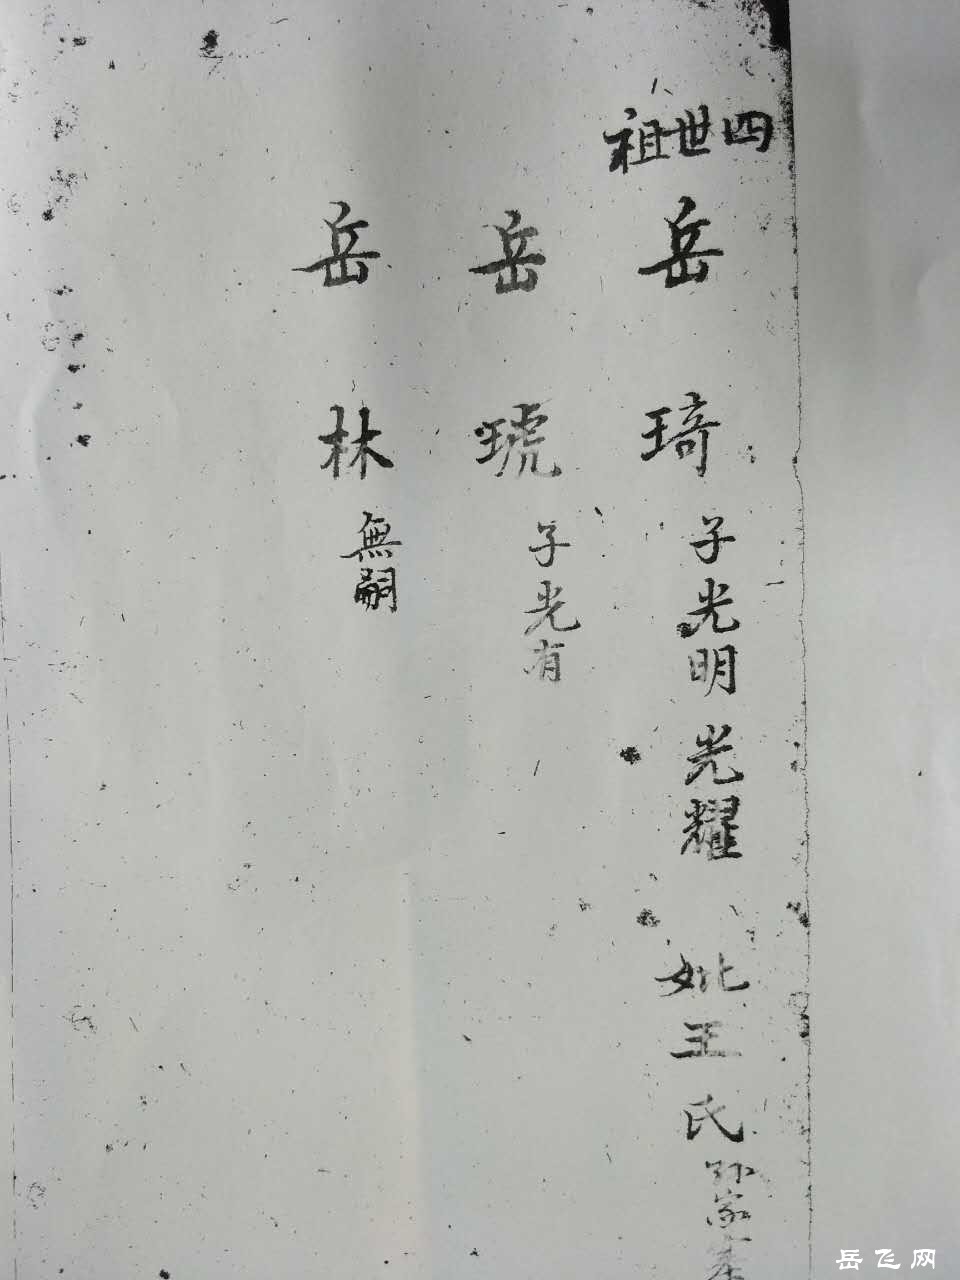 四世祖
岳琦 子光明 光耀 妣王氏
岳琥 子光有
岳林 無嗣
岳飞网